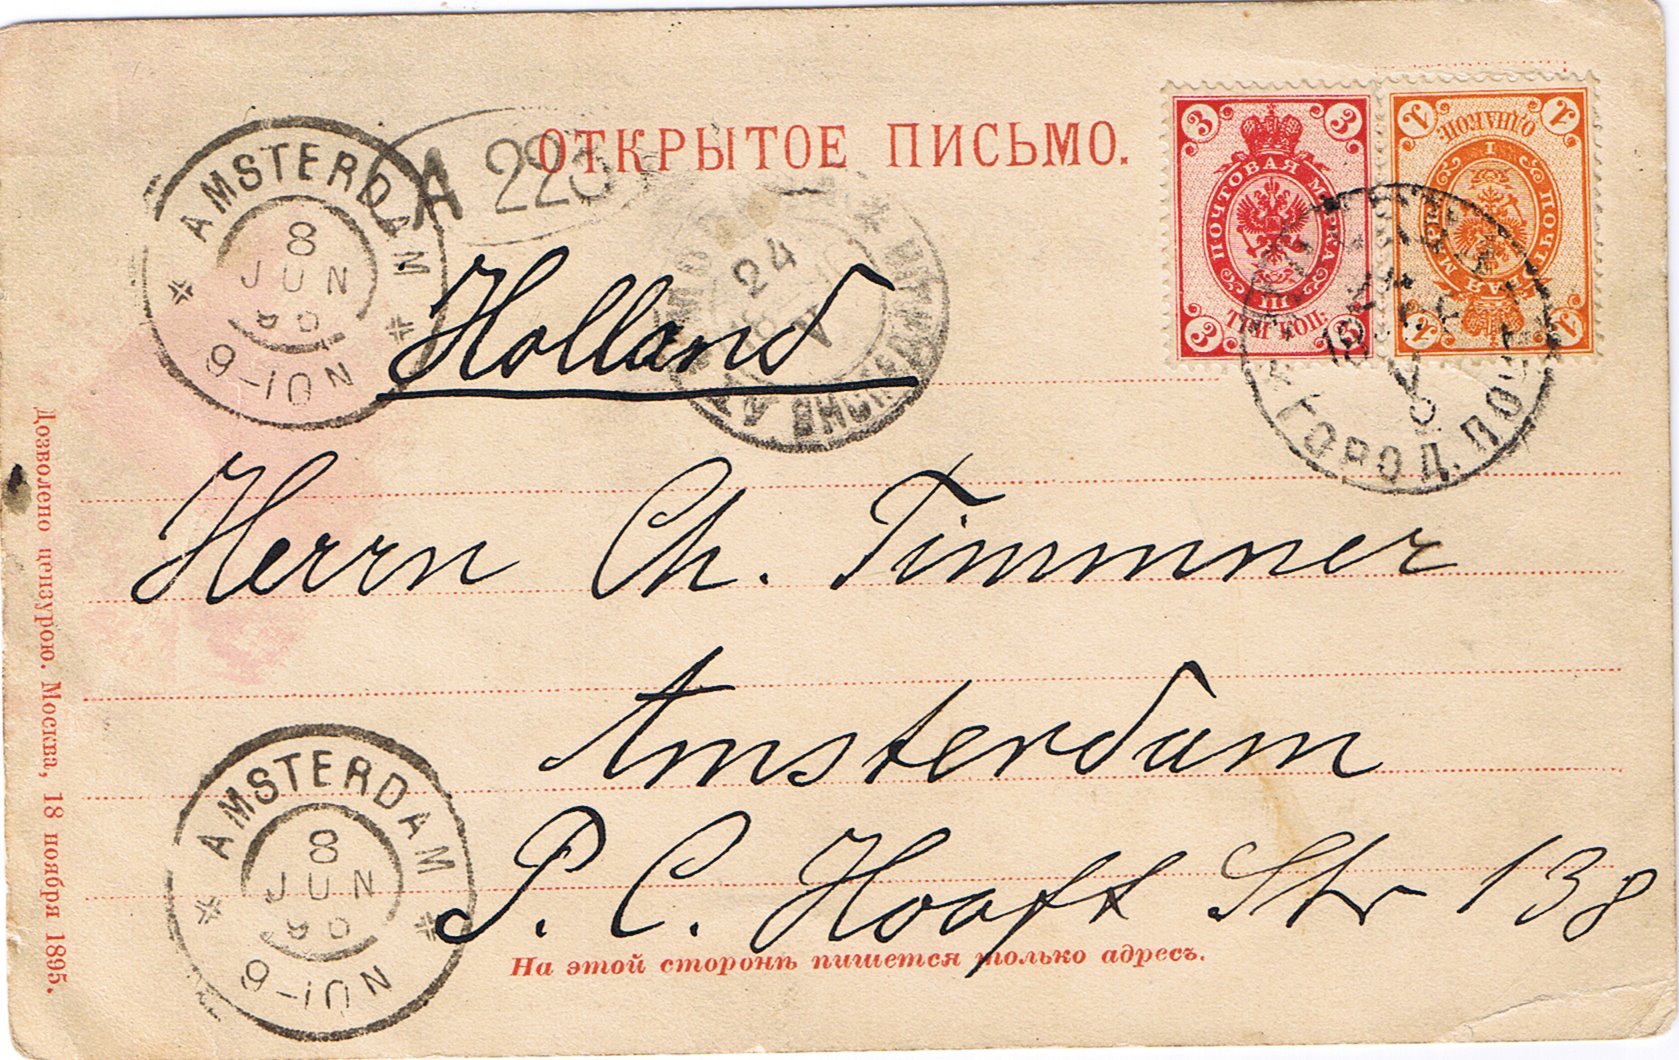 ОТКРЫТОЕ ПИСЬМО.
3 3
ПОЧТОВАЯ МАРКА
III
ТРИ КОП:
3 3
1 1
ПОЧТОВАЯ МАРКА
I
ОДНА КОП:
1 1
AMSTERDAM
8
JUN
9-10 N
A 223
24
ГОРОД. ПОЧ
Holland
Herrn Ch. Timmner
Amsterdam
P. C. Hooft Str 138
AMSTERDAM
8
JUN
96
9-10 N
На этой сторонѣ пишется только адресъ.
Дозволено цензурою. Москва, 18 ноября 1895.